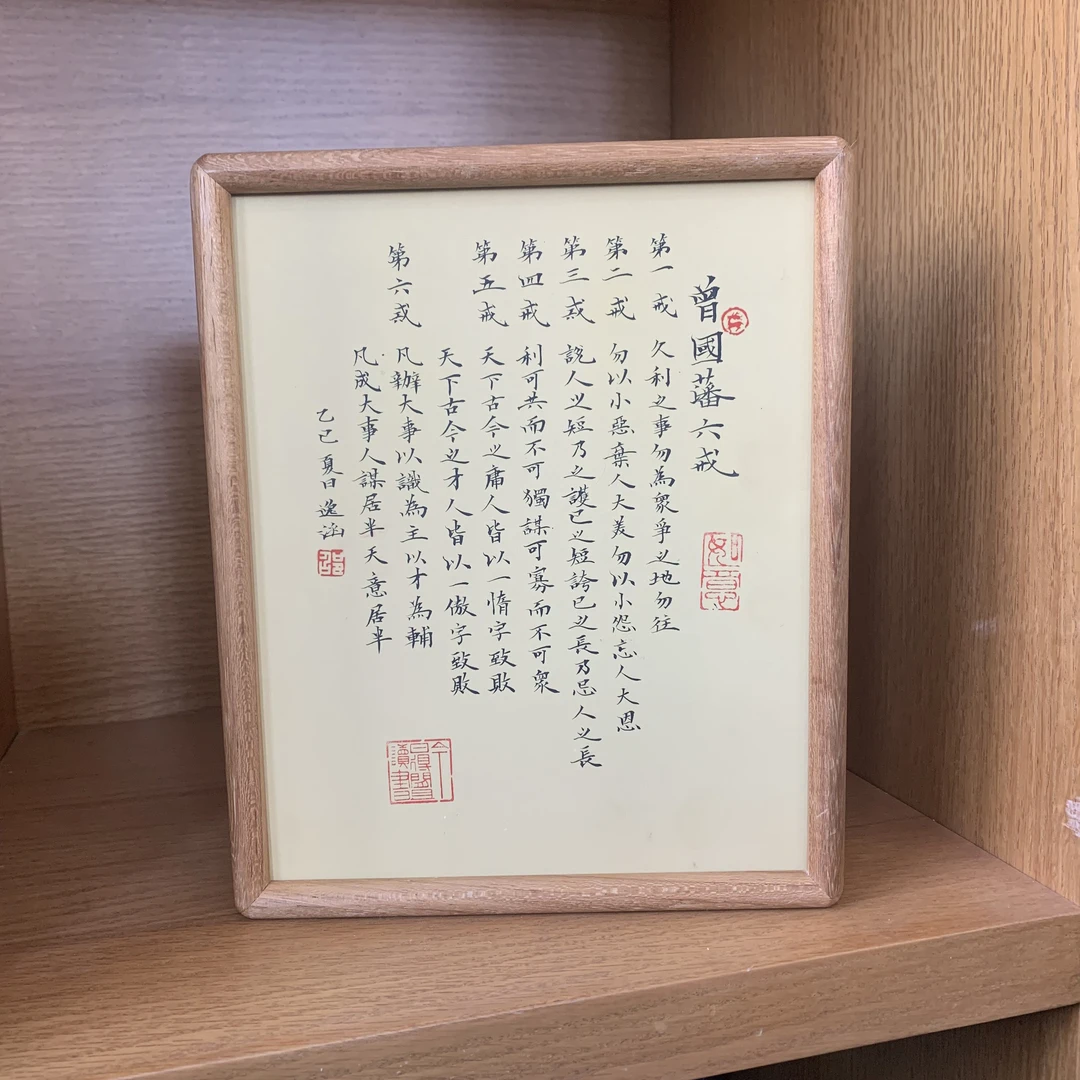 曾國藩六戒
如意
第一戒 久利之事勿為衆爭之地勿往
第二戒 勿以小惡棄人大美勿以小怨忘人大恩
第三戒 說人之短乃之護己之短誇己之長乃忌人之長
第四戒 利可共而不可獨謀可寡而不可衆
第五戒 天下古今之庸人皆以一惰字致敗
天下古今之才人皆以一傲字致敗
第六戒 凡辦大事以識為主以才為輔
凡成大事人謀居半天意居半
乙巳夏日逸涵